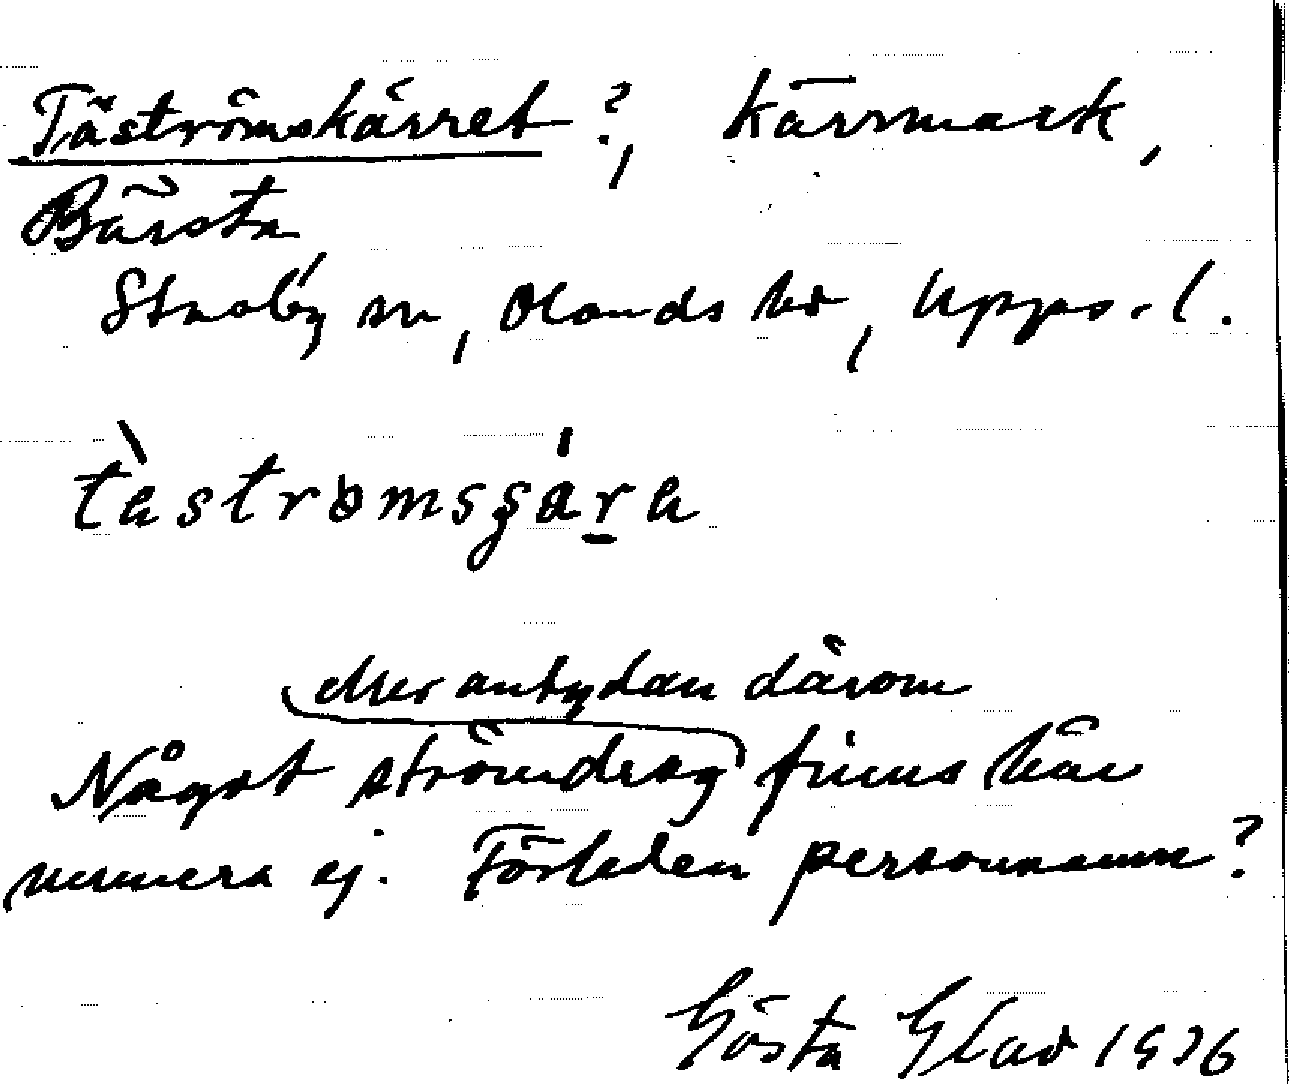 Täströmskärret ?, Kärrmark,
Bärsta
Stavby sn, Olands hd, Upps. l.
tèstromsșára
eller antydan därom
Något strömdrag finns här
numera ej. Förleden personnamn?
Gösta Glad 1936